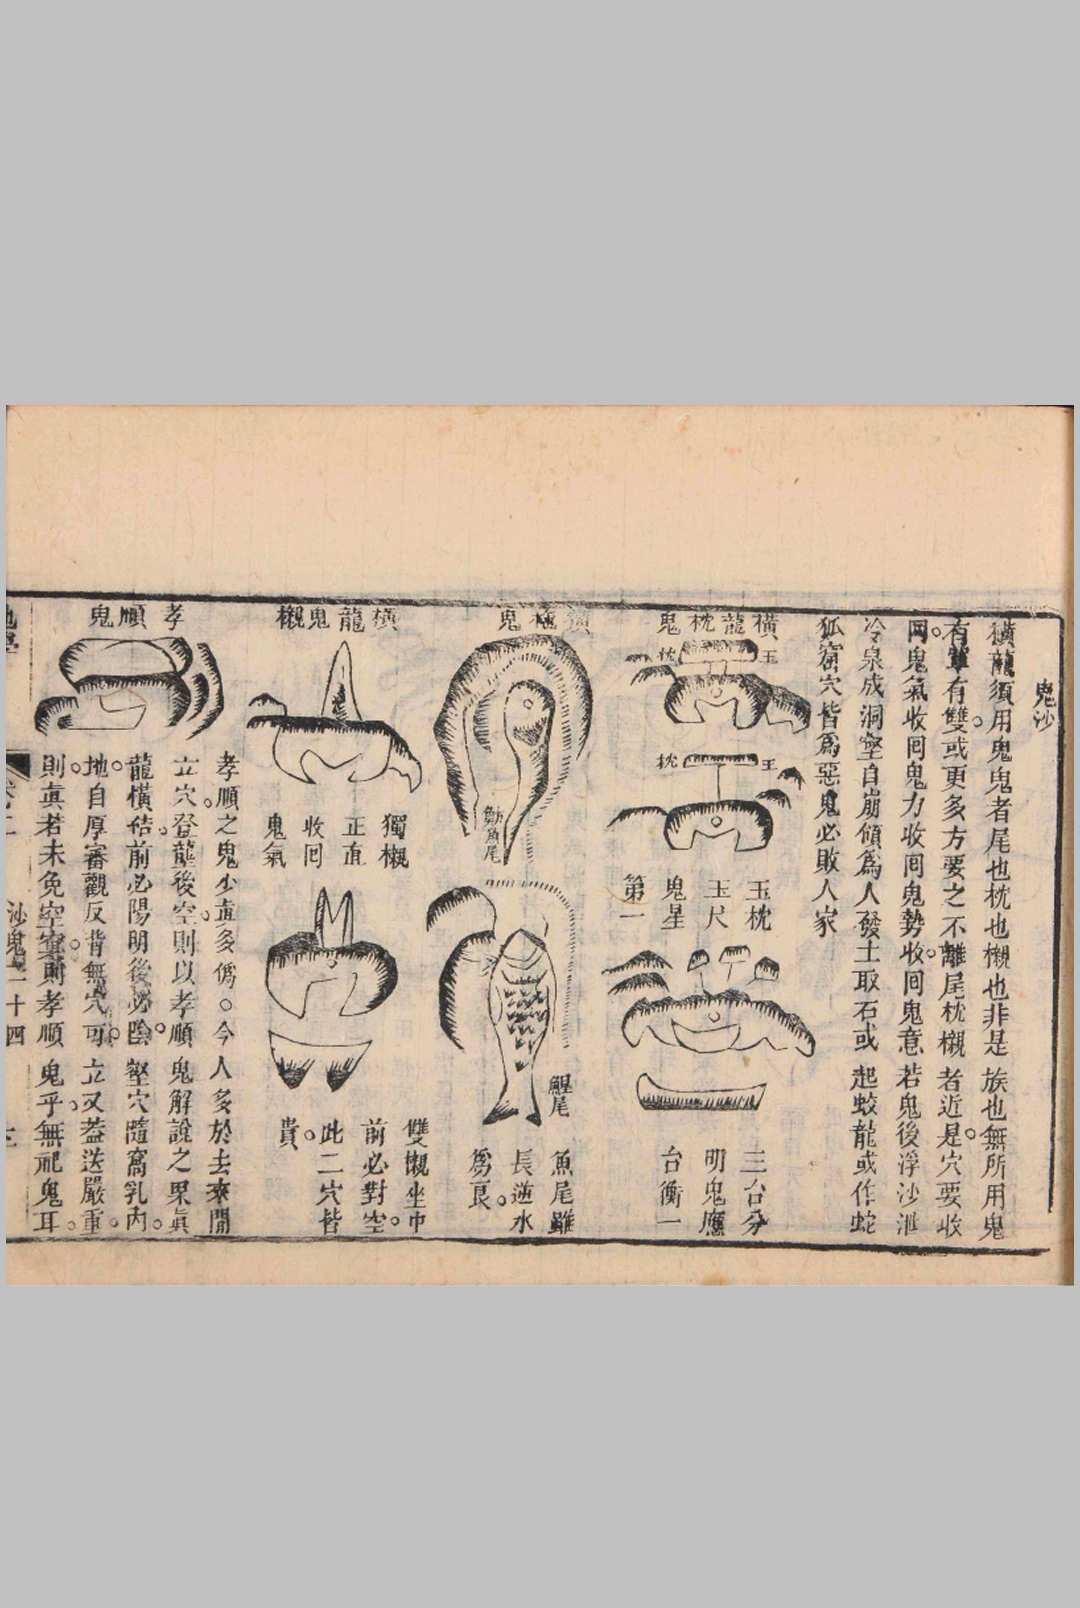 鬼沙
橫龍須用鬼鬼者尾也枕也櫬也非是族也無所用鬼
有單有雙或更多方要之不離尾枕櫬者近是穴要收
回鬼氣收回鬼力收回鬼勢收回鬼意若鬼後浮沙泄
冷泉成洞壑自崩傾爲人發土取石或起蛟龍或作蛇
狐窟穴皆爲惡鬼必敗人家
橫龍枕鬼
玉
枕
玉
枕
玉枕
玉尺
鬼星
第一
三台分
明鬼應
台衡一
鬼
魚尾
鯉尾
魚尾雖
長逆水
爲良
橫龍鬼櫬
獨櫬
正直
收回
鬼氣
雙櫬坐中
前必對空
此二穴皆
貴
孝順鬼
孝順之鬼少真多僞今人多於去來閒
立穴登龍後空則以孝順鬼解說之果眞
龍橫結前必陽明後必陰壑穴隨窩乳內
地自厚審觀反背無穴可立又葢送嚴重
則眞若未免空竇則孝順鬼乎無祀鬼耳
沙鬼 十四